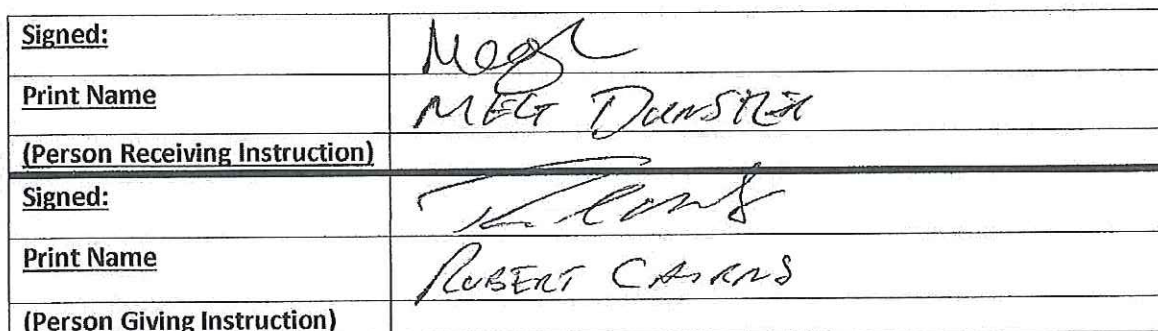 Signed: Meg
Print Name MEG DUNSTER
(Person Receiving Instruction)
Signed: R Cairns
Print Name ROBERT CAIRNS
(Person Giving Instruction)